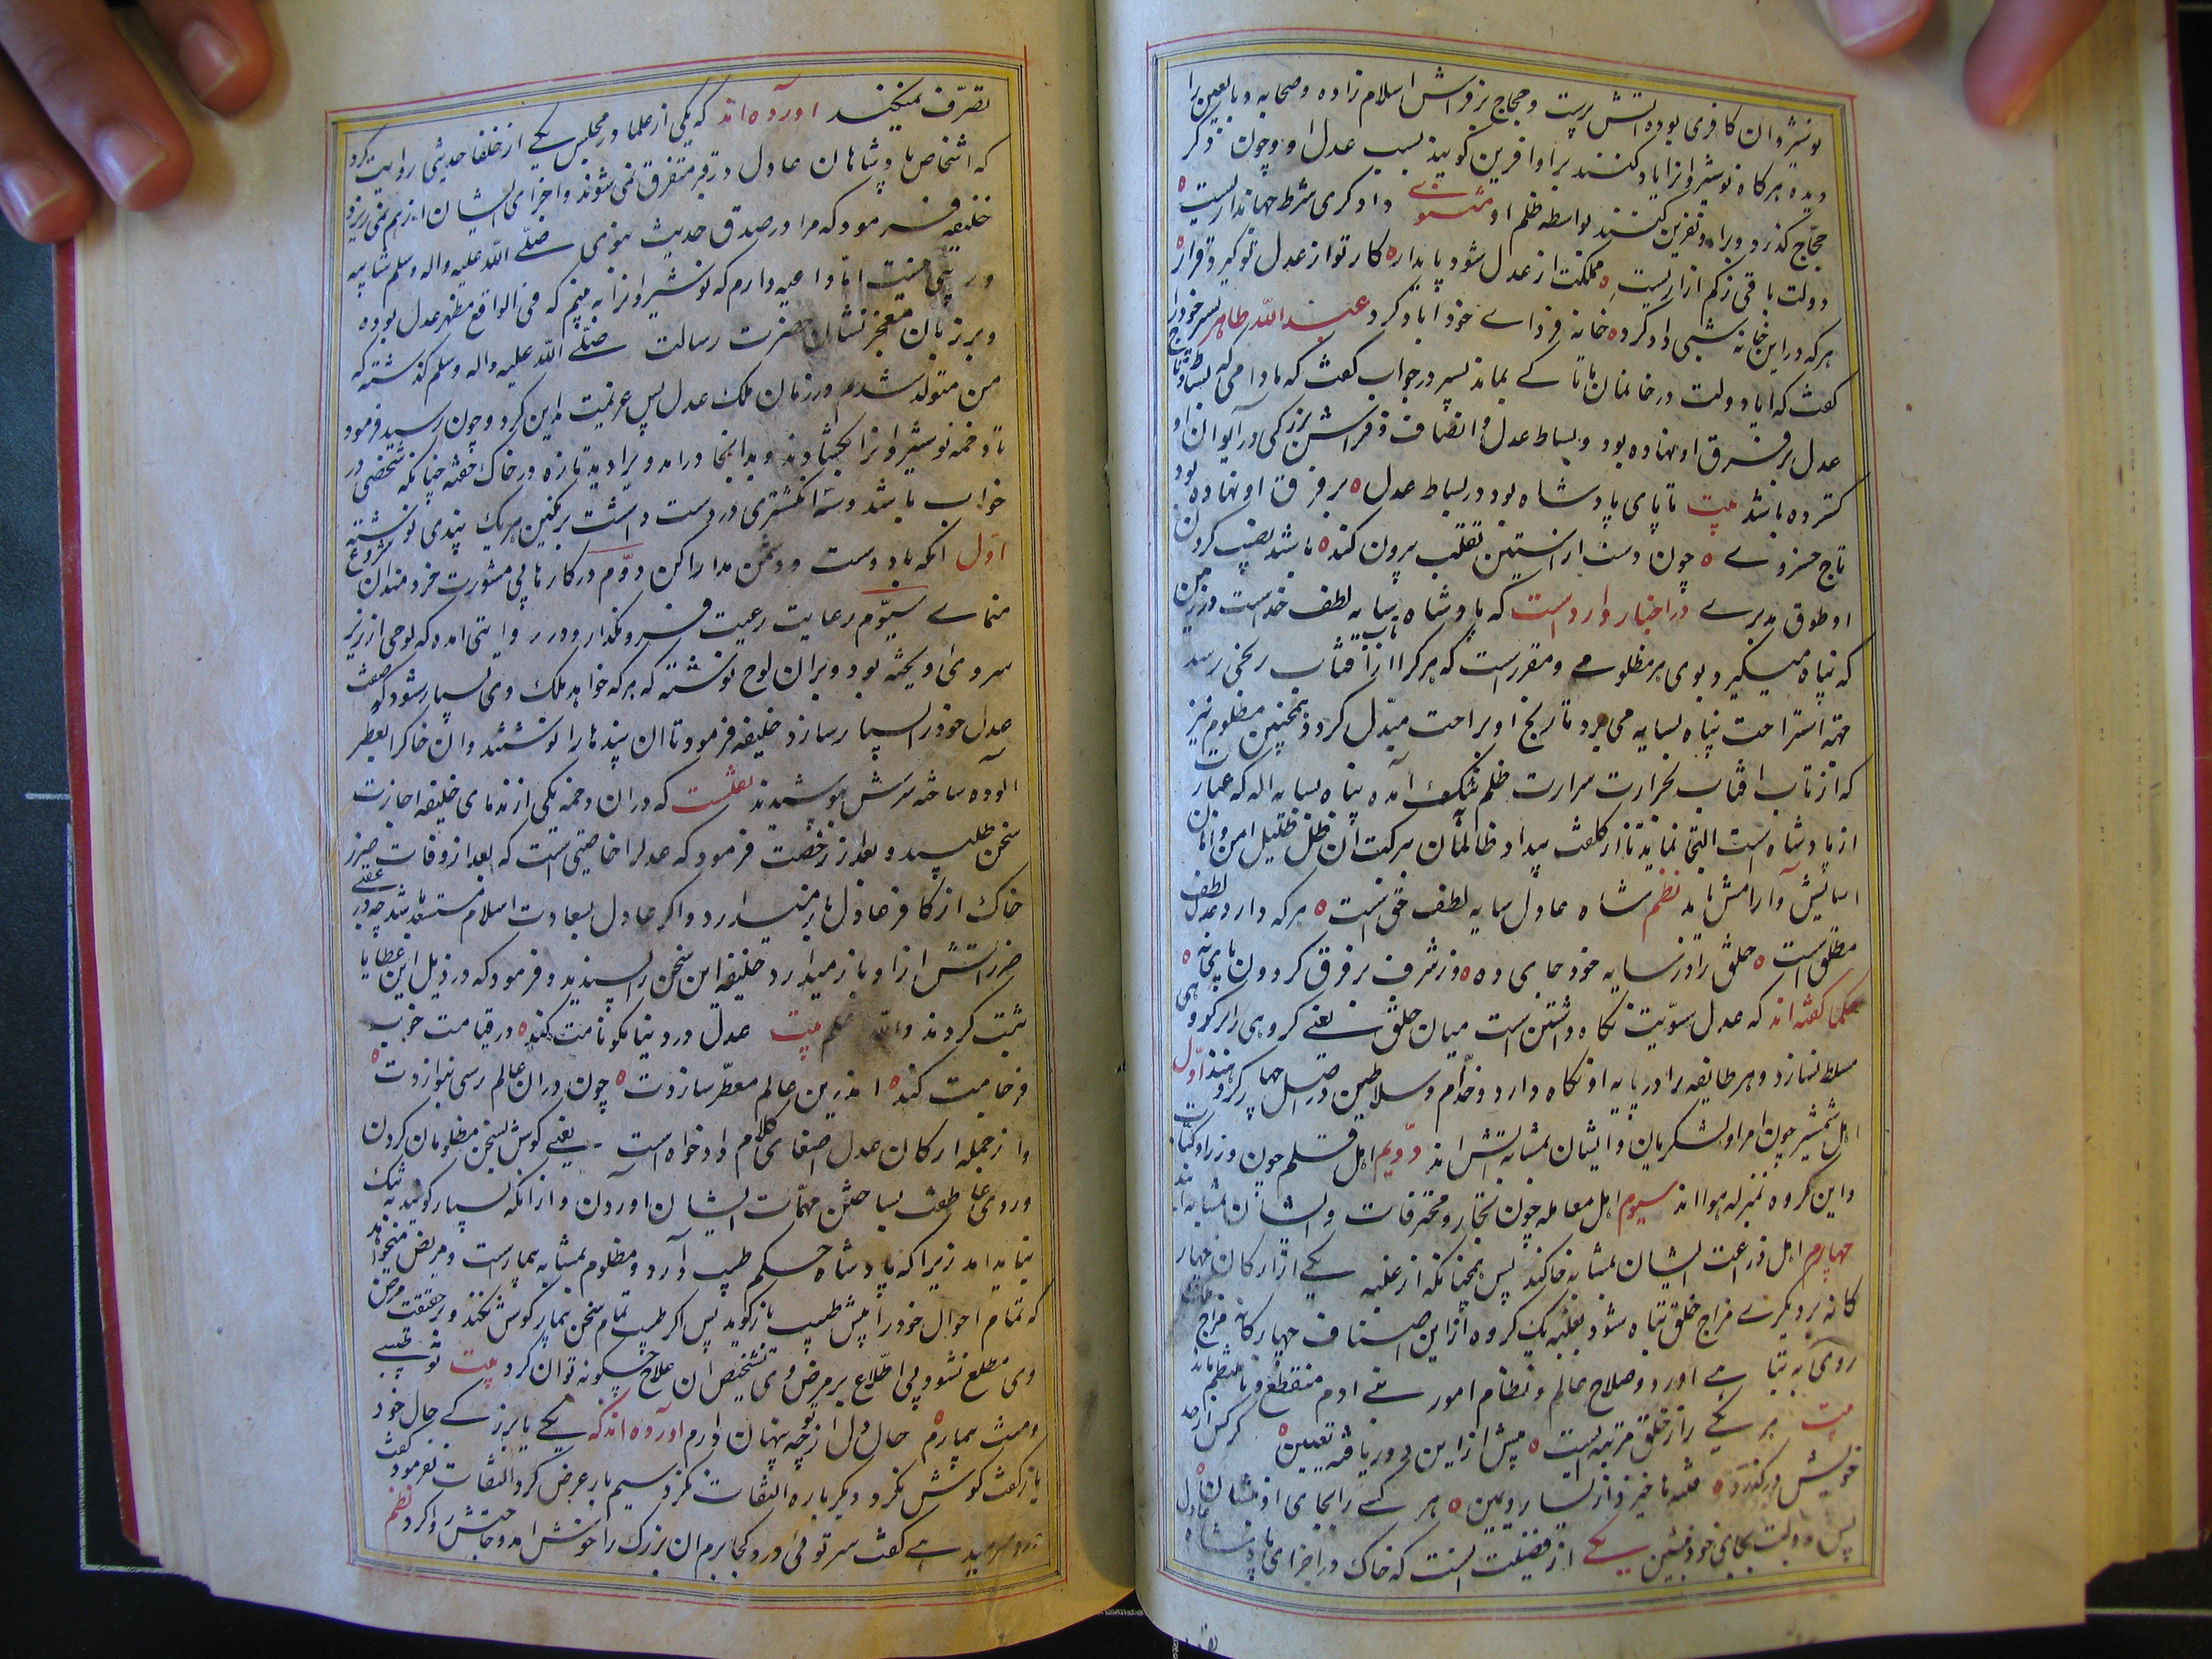 نوشیروان کافری بوده اتش پرست و حجاج بر فراش اسلام زاده و صحابه و تابعین را
دیده هرکاه نوشیروانرا یاد کنند برو افرین کویند بسبب عدل او و چون ذکر
حجاج کذرد برو نفرین کنند بواسطه ظلم او مثنوی داد کری شرط جهانداریست
دولت باقی زکم ازاریست مملکت از عدل شود پایدار کار تو از عدل تو کیرد قرار
هرکه در این خانه شبی داد کرد خانه فردای خود اباد کرد عبد الله طاهر پسر خود را
کفت که ایا دولت در خاندان ما تا کی بماند پسر در جواب کفت که مادامی که
عدل بر فرق او نهاده بود و بساط عدل و انصاف و فراش بزرکی در ایوان او
کسترده باشد بیت تا پای پادشاه بود در بساط عدل بر فرق او نهاده بود
تاج خسروی چون دست از استین تقلب برون کند باشد نصیب کردن
او طوق مدبری در اخبار وارد است که پادشاه سایه لطف خداست در زمین
که پناه میکیرد بوی هر مظلومی و مقررست که هرکرا از تاب افتاب رنجی رسد
جهة استراحت پناه بسایه می برد تا رنج او براحت مبدل کردد همچنین مظلوم نیز
که از تاب افتاب حرارت ظلم بتنک آمده پناه بسایه اله که عبارت
از پادشاه است التجا نماید تا از کلفت بیداد ظالمان ببرکت ان ظل ظلیل امن و امان
اسایش و ارامش یابد نظم شاه عادل سایه لطف حق است هرکه دارد عدل لطف
مطلق است خلق را در سایه خود جای ده وز شرف بر فرق کردون پای نه
حکما کفته اند که عدل سویت نکاه داشتن است میان خلق یعنی کروهی را بر کروهی
مسلط نسازد و هر طایفه را در پایه او نکاه دارد و خدام و سلاطین در اصل چهار کروهند اول
اهل شمشیر چون امرا و لشکریان و ایشان بمثابه اتش اند دویم اهل قلم چون وزرا و کتاب
و این کروه بمنزله هوا اند سیوم اهل معامله چون تجار و محترفات و ایشان بمثابه اب اند
چهارم اهل زراعت ایشان بمثابه خاکند پس همچنانکه از غلبه یکی از ارکان چهار
کانه بر دیکری مزاج خلق تباه شود بغلبه یک کروه از این اصناف چهارکانه مزاج
روی به تباهی اورد و صلاح عالم و نظام امور بنی ادم منقطع و نامنتظم ماند
بیت هر یکی را از خلق مرتبه ایست پیش از این دور یافته تعیین کر کس از حد
خویش در کذرد فتنه ها خیزد از یسار و یمین هر کسی را بجای او بنشان
پس بدولت بجای خود بنشین یکی از فضیلت انست که خاک در اجزای پادشاه عادل
تصرف نمیکند اورده اند که یکی از علما در مجلس یکی از خلفا حدیثی روایت کرد
که اشخاص پادشاهان عادل در قبر متفرق نمی شوند و اجزای ایشان از هم نمی ریزد
خلیفه فرمود که مرا در صدق حدیث نبوی صلی الله علیه واله وسلم شایبه
و ریبی نیست اما داعیه دارم که نوشیروانرا به بینم که فی الواقع مظهر عدل بوده
و بر زبان معجز نشان حضرت رسالت صلی الله علیه واله وسلم کذشته که
من متولد شدم در زمان ملک عدل پس عزیمت مداین کرد و چون رسید فرمود
تا دخمه نوشیروانرا بکشادند و بدانجا درامد و یرا دید تازه در خاک خفته چنانکه شخصی در
خواب باشد و سه انکشتری در دست داشت بر نکین هریک پندی نوشته
اول انکه با دوست و دشمن مدارا کن دوم در کارها بی مشورت خردمندان شروع
منمای سیوم رعایت رعیت فرو مکذار و در روایتی امده که لوحی از زر
سر وی اویخته بود و بران لوح نوشته که هرکه خواهد ملک وی بسیار شود کو صفت
عدل خود را بسیار سازد خلیفه فرمود تا ان پندها را نوشتند و ان خاکرا بعطر
الوده ساخته سرش بپوشیدند نقلست که در ان دخمه یکی از ندمای خلیفه اجازت
سخن طلبید و بعد از رخصت فرمود که عدلرا خاصیتی است که بعد از وفات ضرر
خاک از کافر عادل باز میدارد و اکر عادل بسعادت اسلام مستعد باشد چه در عقبی
ضرر اتش از او باز میدارد خلیفه این سخن را پسندید و فرمود که در ذیل این عطایا
ثبت کردند والله اعلم بیت عدل در دنیا نکونامت کند در قیامت خوب
فرجامت کند اندرین عالم معطر سازدت چون در ان عالم رسی بنوازدت
و از جمله ارکان عدل اصغای کلام داد خواه است یعنی کوش بسخن مظلومان کردن
و روی عاطفت بساختن مهمات ایشان اوردن و از انکه بسیار کویند به تنک
نباید امد زیرا که پادشاه حکم طبیب دارد و مظلوم بمثابه بیمارست و مریض میخواهد
که تمام احوال خود را پیش طبیب باز کوید پس اکر طبیب تمام سخن بیمار کوش نکند و بر حقیقت مرض
وی مطلع نشود بی اطلاع بر مرض و بی تشخیص ان علاج چکونه توان کرد بیت تو طبیبی
ومنت بیمارم حال دل از تو چه پنهان دارم اورده اند که یکی با بزرکی حال خود
باز کفت کوش نکرد دیکر باره التفات نکرد سیم بار عرض کرد التفات نفرمود کفت
سر توئی درد کجا برم ان بزرک را خوش امد و حاجتش روا کرد نظم